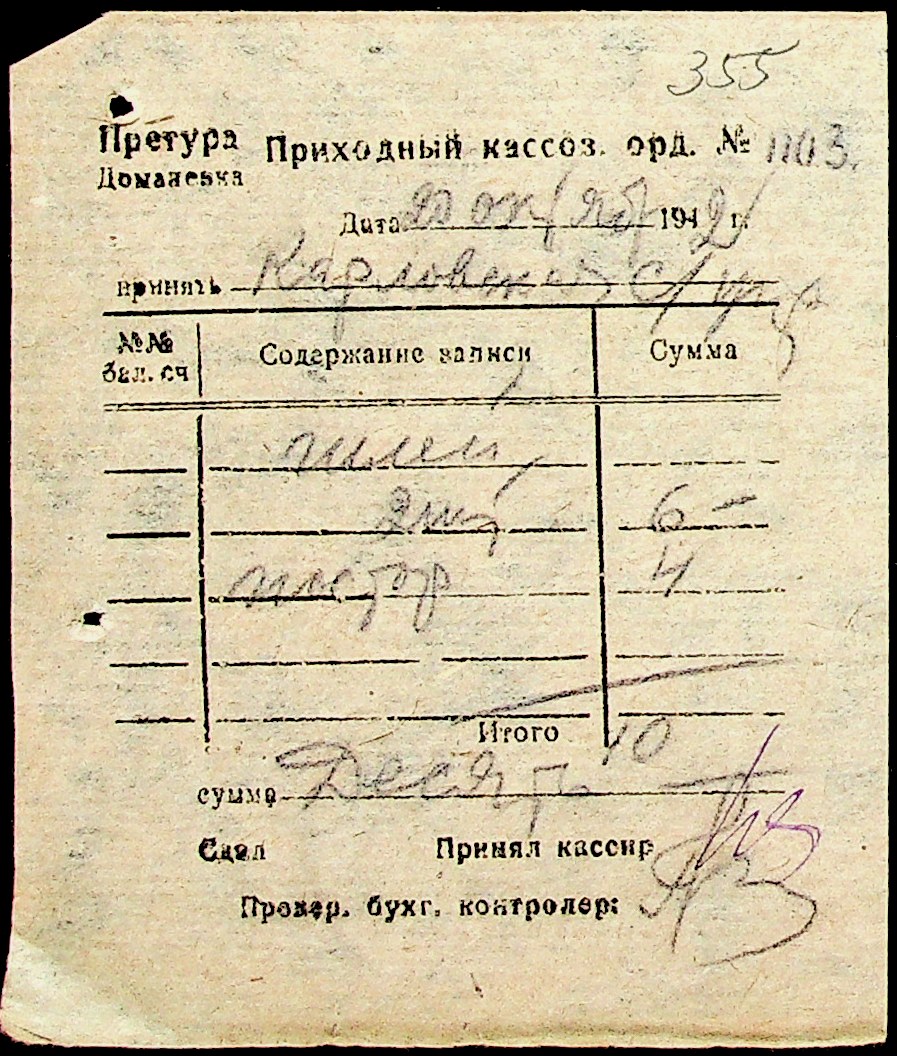 355
Претура Приходный кассов. орд. № 1103.
Доманевка
Дата 20 октябр 1942 г.
принять Карловской с/упр
№№ бал. сч Содержание записи Сумма
6 –
4
Итого 10
сумма Десять
Сдал Принял кассир
Провер. бухг. контролер: